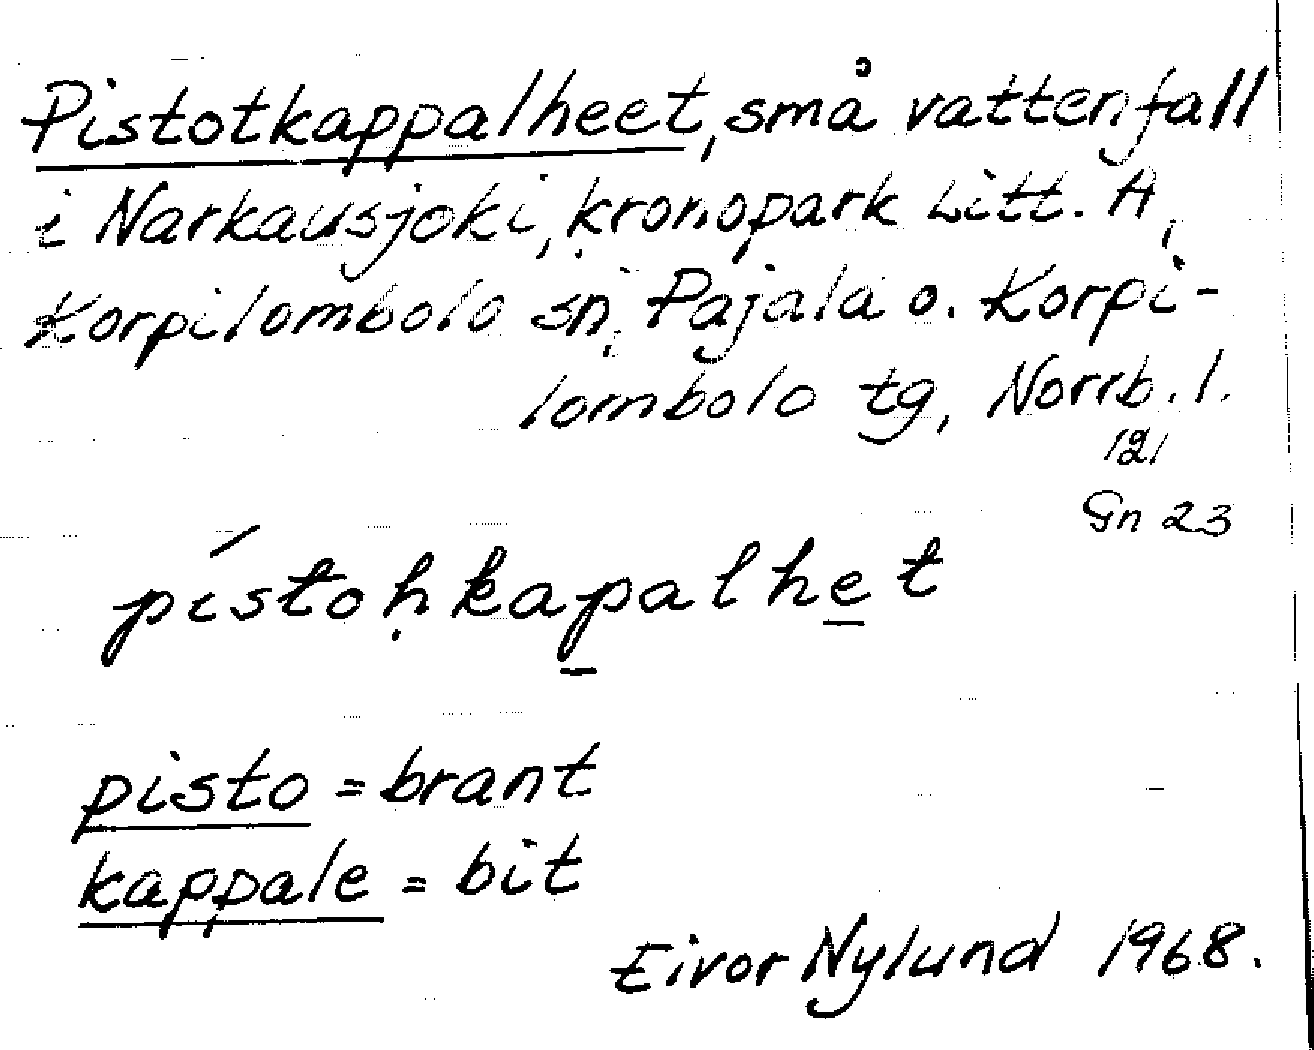 Pistotkappalheet, små vattenfall
i Narkausjoki, kronopark Litt. A,
Korpilombolo sn, Pajala o. Korpi-
lombolo tg, Norrb. l.
121
Gn 23
pístoḥkap̲alhe̲t
pisto = brant
kappale = bit
Eivor Nylund 1968.